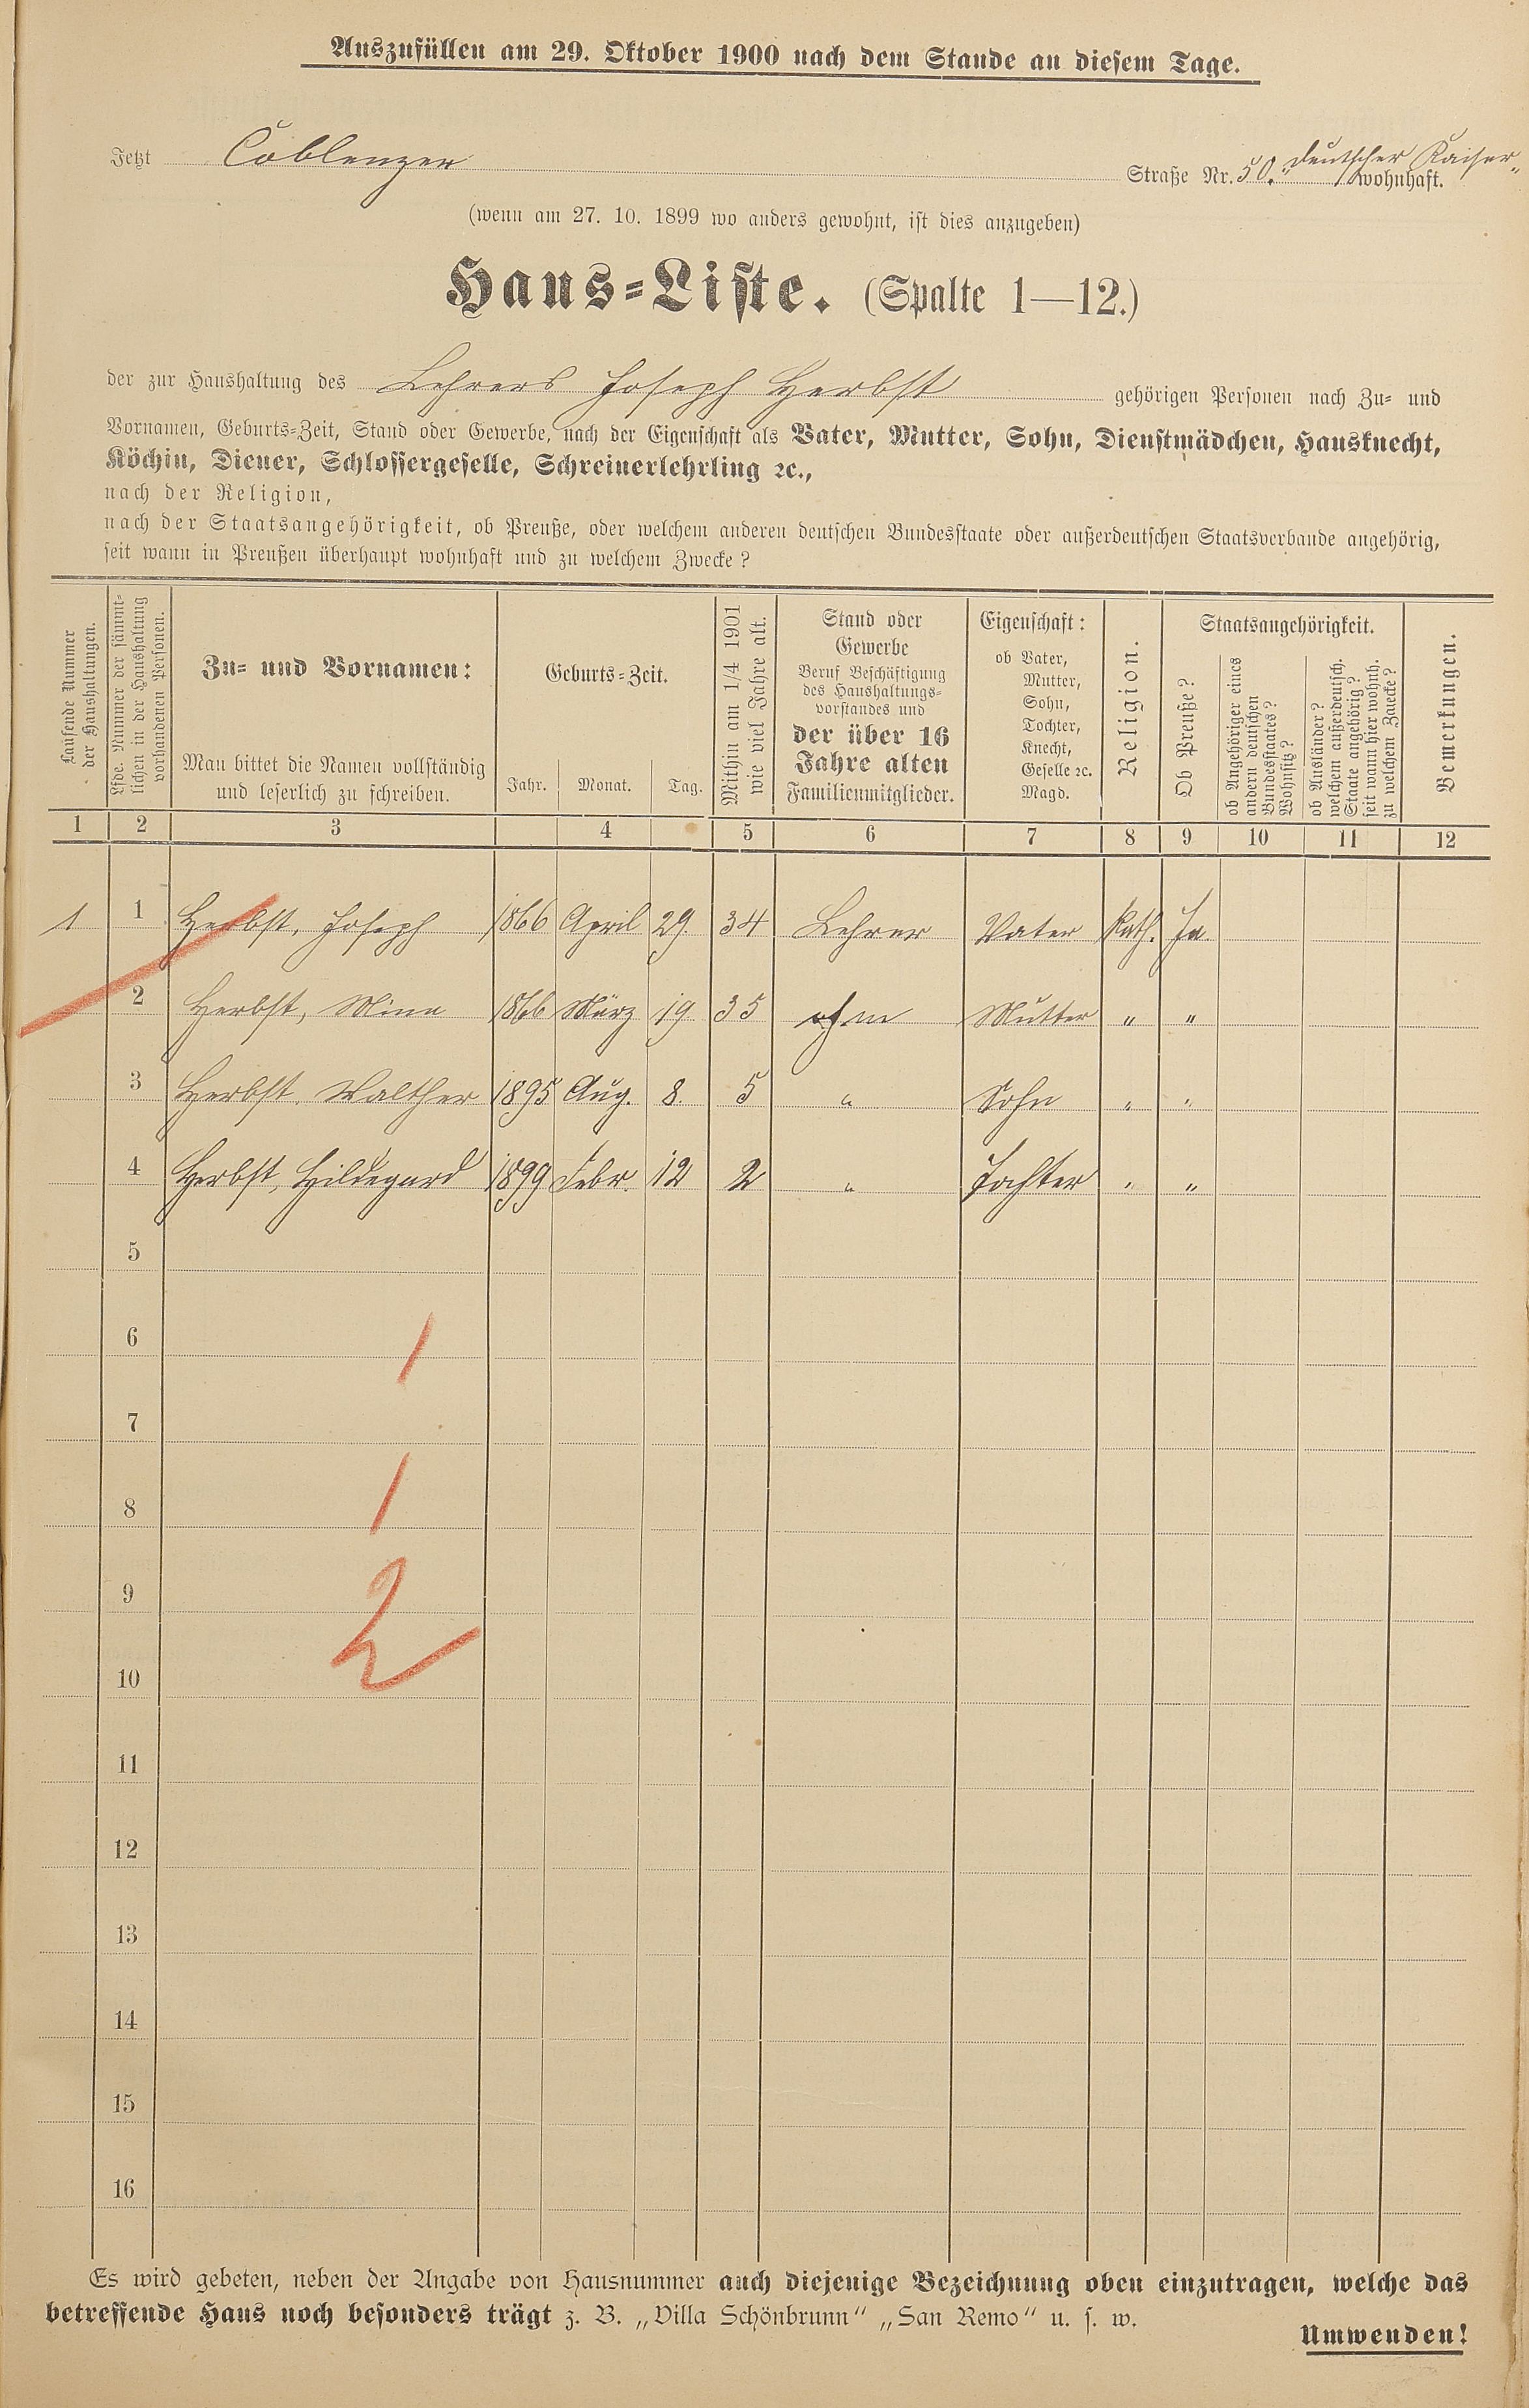 Auszufüllen am 29. Oktober 1900 nach dem Stande an diesem Tage.
Jetzt Coblenzer Straße Nr. 50. „Deutscher Kaiser„ wohnhaft.
(wenn am 27. 10. 1899 wo anders gewohnt, ist dies anzugeben)
Haus-Liste. (Spalte 1—12.)
der zur Haushaltung des Lehrers Joseph Herbst gehörigen Personen nach Zu- und
Vornamen, Geburts-Zeit, Stand oder Gewerbe, nach der Eigenschaft als Vater, Mutter, Sohn, Dienstmädchen, Hausknecht,
Köchin, Diener, Schlossergeselle, Schreinerlehrling ꝛc.,
nach der Religion,
nach der Staatsangehörigkeit, ob Preuße, oder welchem anderen deutschen Bundesstaate oder außerdeutschen Staatsverbande angehörig,
seit wann in Preußen überhaupt wohnhaft und zu welchem Zwecke?
Laufende Nummer
der Haushaltungen.
Lfde. Nummer der sämmt-
lichen in der Haushaltung
vorhandenen Personen.
Zu- und Vornamen:
Man bittet die Namen vollständig
und leserlich zu schreiben.
Geburts-Zeit.
Jahr. Monat. Tag.
Mithin am 1/4 1901
wie viel Jahre alt.
Stand oder
Gewerbe
Beruf Beschäftigung
des Haushaltungs-
vorstandes und
der über 16
Jahre alten
Familienmitglieder.
Eigenschaft:
ob Vater,
Mutter,
Sohn,
Tochter,
Knecht,
Geselle ꝛc.
Magd.
Religion.
Staatsangehörigkeit.
Ob Preuße?
ob Angehöriger eines
andern deutschen
Bundesstaates?
Wohnsitz?
ob Ausländer?
welchem außerdeutsch.
Staate angehörig?
seit wann hier wohnh.
zu welchem Zwecke?
Bemerkungen.
1 2 3 4 5 6 7 8 9 10 11 12
1 1 Herbst, Joseph 1866 April 29. 34 Lehrer Vater Kath. Ja
2 Herbst, Mina 1866 März 19. 35 Mutter „ „
3 Herbst, Walther 1895 Aug. 8. 5 „ Sohn „ „
4 Herbst, Hildegard 1899 Febr. 12 2 „ Tochter „ „
5
6
1
7
8
1
9
2
10
11
12
13
14
15
16
Es wird gebeten, neben der Angabe von Hausnummer auch diejenige Bezeichnung oben einzutragen, welche das
betreffende Haus noch besonders trägt z. B. „Villa Schönbrunn" „San Remo" u. s. w.
Umwenden!